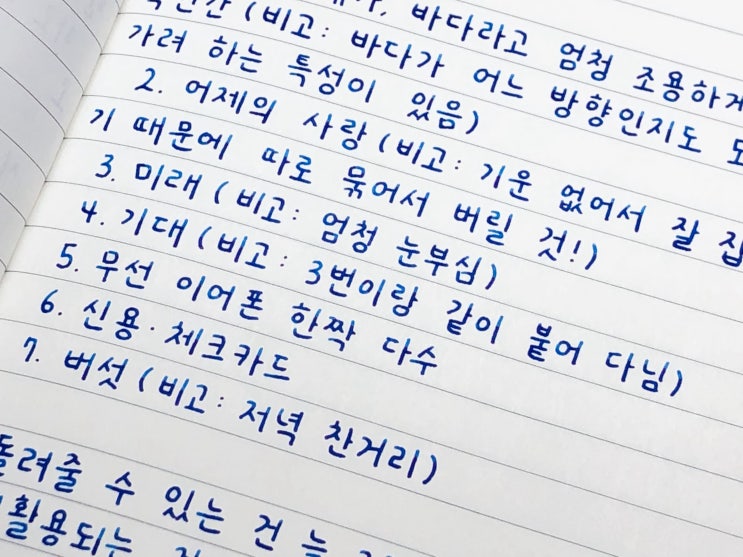 (비고: 바다가, 바다라고 엄청 조용하게
가려 하는 특성이 있음) 어느 방향인지도
2. 어제의 사랑 (비고: 기운 없어서 잘 집
기 때문에 따로 묶어서 버릴 것!)
3. 미래 (비고: 엄청 눈부심)
4. 기대 (비고: 3번이랑 같이 붙어 다님)
5. 무선 이어폰 한짝 다수
6. 신용·체크카드
7. 버섯 (비고: 저녁 찬거리)
돌려줄 수 있는 건 늘
활용되는